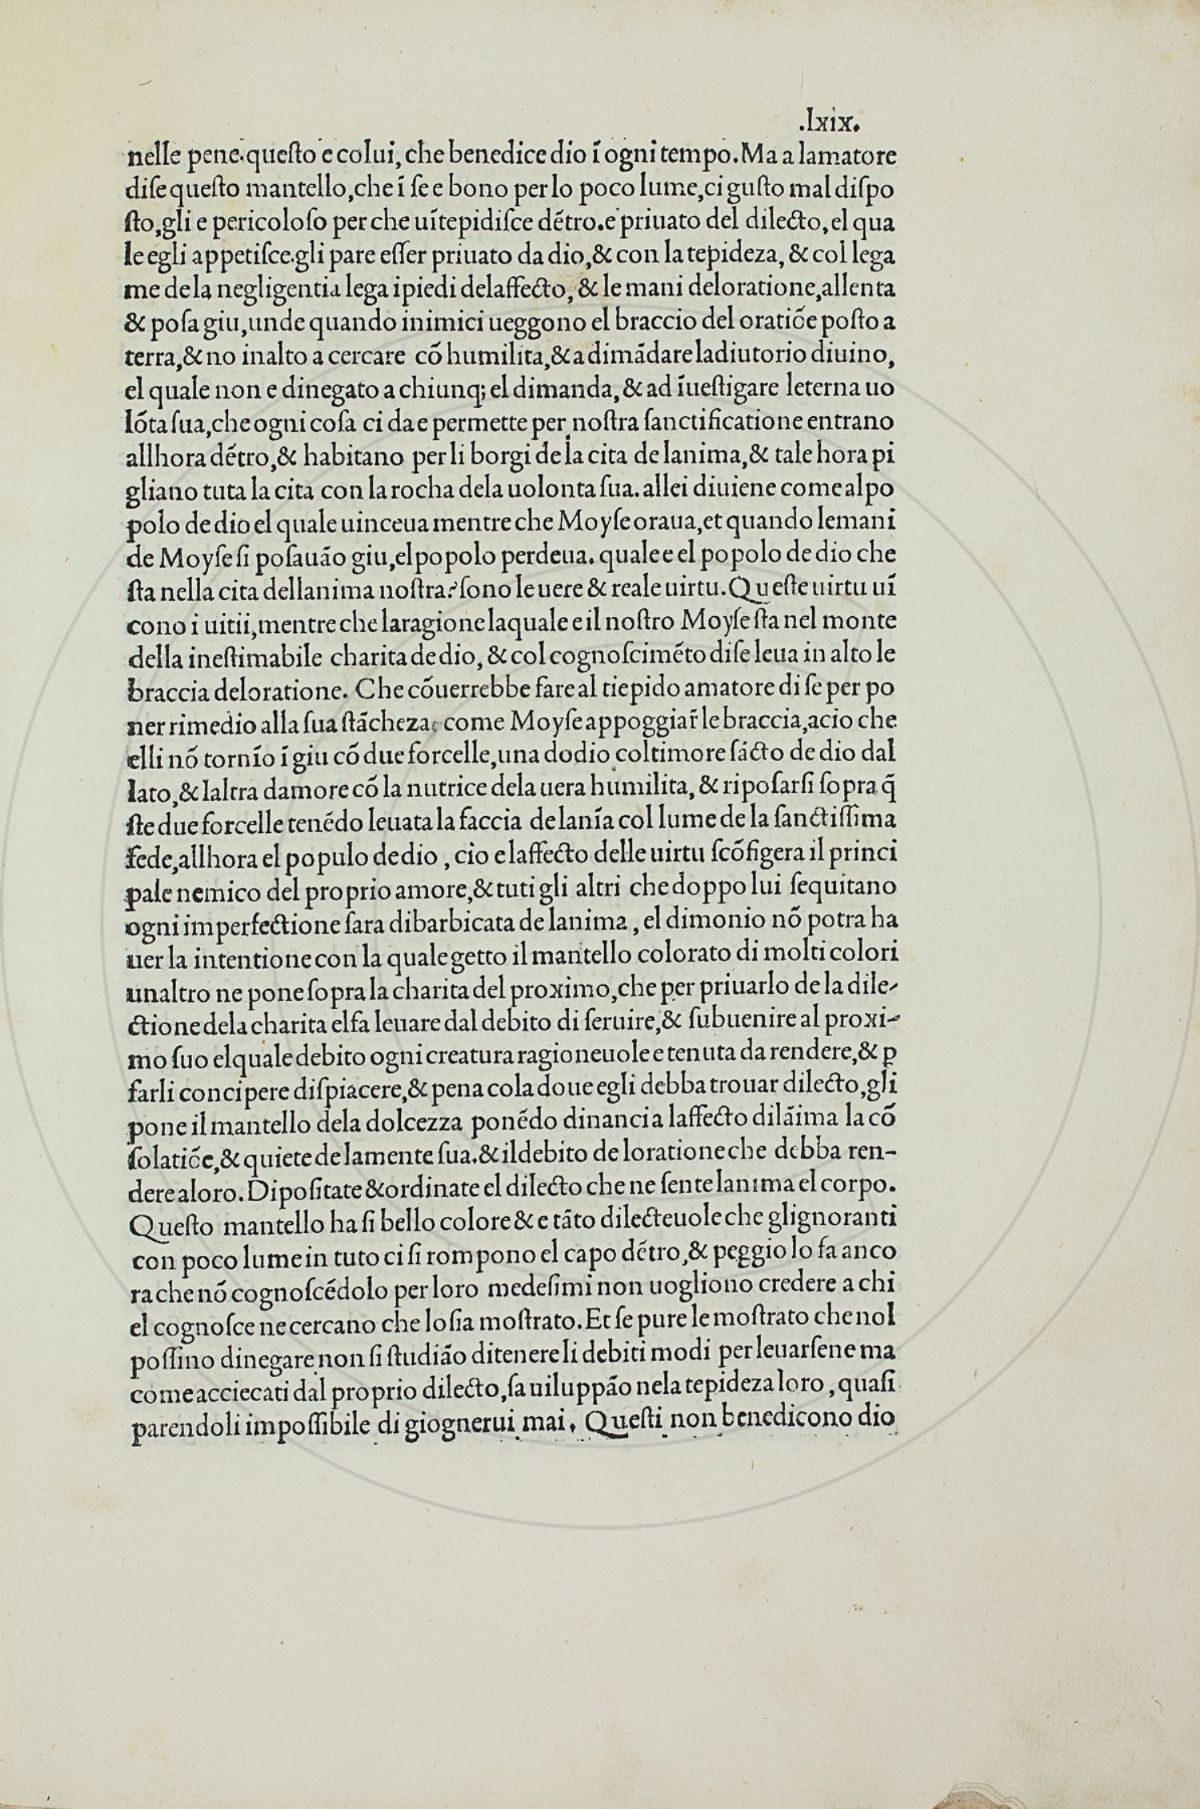 .lxix.
nelle pene.queſto e colui, che benedice dio ī ogni tempo.Ma a lamatore
diſe queſto mantello,che ī ſe e bono per lo poco lume,ci guſto mal diſpo
ſto,gli e pericoloſo per che uītepidiſce dētro.e priuato del dilecto,el qua
le egli appetiſce.gli pare eſſer priuato da dio,& con la tepideza, & col lega
me de la negligentia lega i piedi delaffecto, & le mani deloratione,allenta
& poſa giu,unde quando inimici ueggono el braccio del oratiōe poſto a
terra,& no inalto a cercare cō humilita,& a dimādare ladiutorio diuino,
el quale non e dinegato a chiunq; el dimanda, & ad īueſtigare leterna uo
lōta ſua,che ogni coſa ci da e permette per noſtra ſanctificatione entrano
allhora dētro,& habitano per li borgi de la cita de lanima,& tale hora pi
gliano tuta la cita con la rocha dela uolonta ſua. allei diuiene come al po
polo de dio el quale uinceua mentre che Moyſe oraua,et quando le mani
de Moyſe ſi poſauāo giu,el popolo perdeua. quale e el popolo de dio che
ſta nella cita dellanima noſtra? ſono le uere & reale uirtu. Queſte uirtu uī
cono i uitii,mentre che la ragione laquale e il noſtro Moyſe ſta nel monte
della ineſtimabile charita de dio, & col cognoſcimēto diſe leua in alto le
braccia deloratione. Che cōuerrebbe fare al tiepido amatore di ſe per po
ner rimedio alla ſua ſtācheza, come Moyſe appoggiar̄ le braccia,acio che
elli nō tornīo ī giu cō due forcelle,una dodio col timore ſācto de dio dal
lato,& laltra damore cō la nutrice dela uera humilita, & ripoſarſi ſopra q̄
ſte due forcelle tenēdo leuata la faccia de lanīa col lume de la ſanctiſſima
fede,allhora el populo de dio , cio e laffecto delle uirtu ſcōfigera il princi
pale nemico del proprio amore,& tuti gli altri che doppo lui ſequitano
ogni imperfectione ſara dibarbicata de lanima , el dimonio nō potra ha
uer la intentione con la quale getto il mantello colorato di molti colori
unaltro ne pone ſopra la charita del proximo,che per priuarlo de la dile-
ctione dela charita elfa leuare dal debito di ſeruire,& ſubuenire al proxi-
mo ſuo elquale debito ogni creatura ragioneuole e tenuta da rendere,& ꝑ
farli concipere diſpiacere,& pena cola doue egli debba trouar dilecto,gli
pone il mantello dela dolcezza ponēdo dinanci a laffecto dilāima la cō
ſolatiōe,& quiete de lamente ſua.& il debito de loratione che debba ren-
dere aloro. Dipoſitate & ordinate el dilecto che ne ſente lanima el corpo.
Queſto mantello ha ſi bello colore & e tāto dilecteuole che glignoranti
con poco lume in tuto ci ſi rompono el capo dētro,& peggio lo fa anco
ra che nō cognoſcēdolo per loro medeſimi non uogliono credere a chi
el cognoſce ne cercano che lo ſia moſtrato. Et ſe pure le moſtrato che nol
poſſino dinegare non ſi ſtudiāo ditenere li debiti modi per leuarſene ma
come acciecati dal proprio dilecto,ſa uiluppāo nela tepideza loro , quaſi
parendoli impoſſibile di giognerui mai. Queſti non benedicono dio